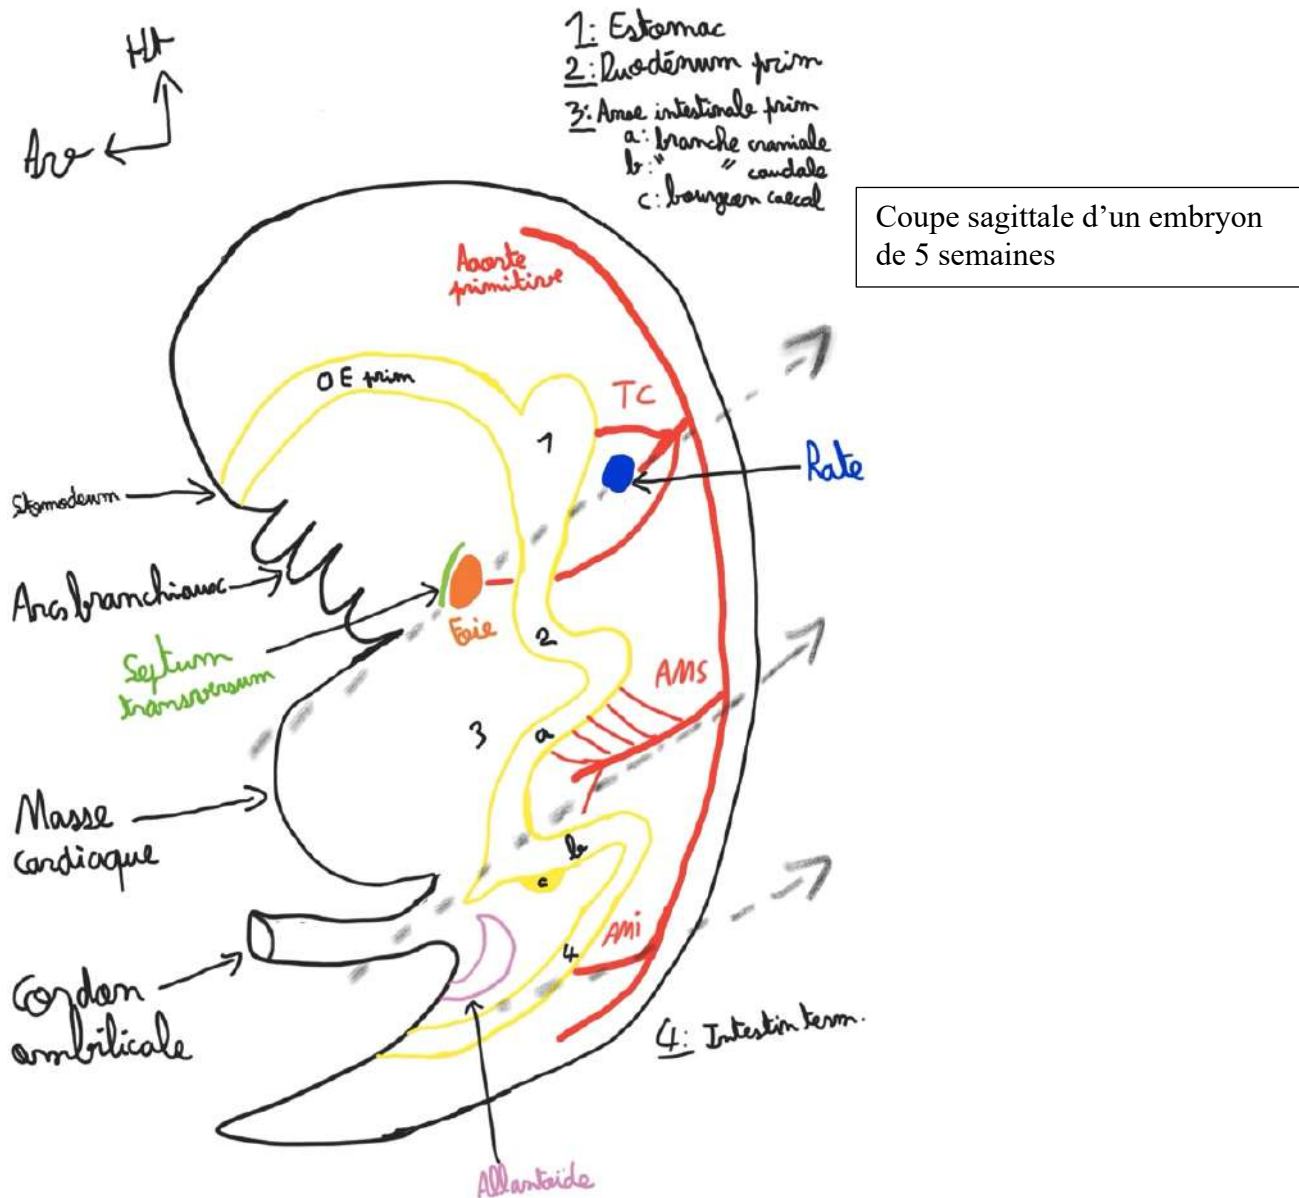 Ht
Av
1: Estomac
2: Duodénum prim
3: Anse intestinale prim
a: branche craniale
b: " " caudale
c: bourgeon caecal
Coupe sagittale d’un embryon
de 5 semaines
Aorte
primitive
OE prim
TC
1
Rate
Stomodeum
Arcs branchiaux
Septum
transversum
Foie
2
AMS
3
a
Masse
cardiaque
b
c
AMi
4
Cordon
ombilicale
4: Intestin term.
Allantoïde